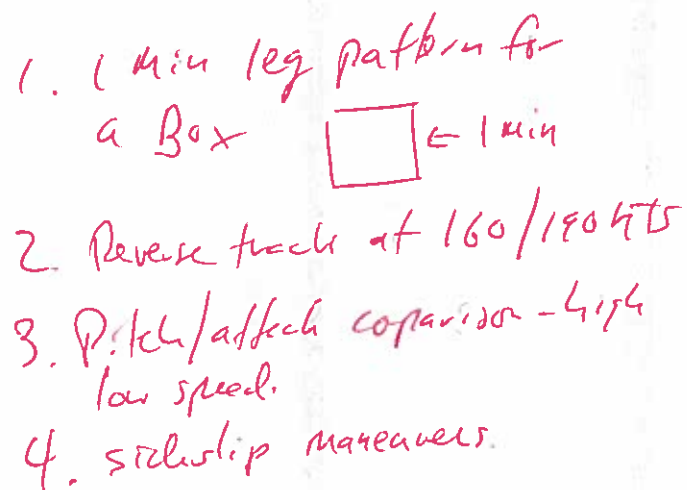 1. 1 Min leg pattern for
a Box ← 1 min
2. Reverse track at 160/190 KTS
3. Pitch/attack coparison - high
low speed.
4. sideslip maneuvers.